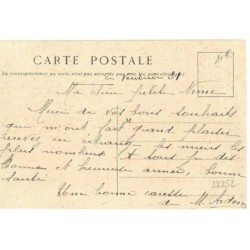 CARTE POSTALE
La correspondance au recto n'est pas acceptée par tous les pays étrangers
Ma petite
Merci de vos bons souhaits
qui m'ont fait grand plaisir
recevez en échange les miens les
plus nombreux. Je vous dis
Bonne et heureuse année, bonne
santé
Une bonne caresse
de M.